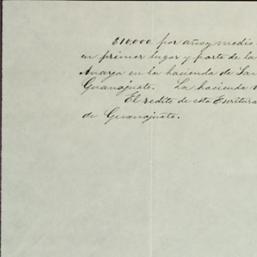 $10,000 por año y medio
en primer lugar y parte de la
Anarza en la hacienda de San
Guanajuato. La hacienda
El redito de esta Escritura
de Guanajuato.